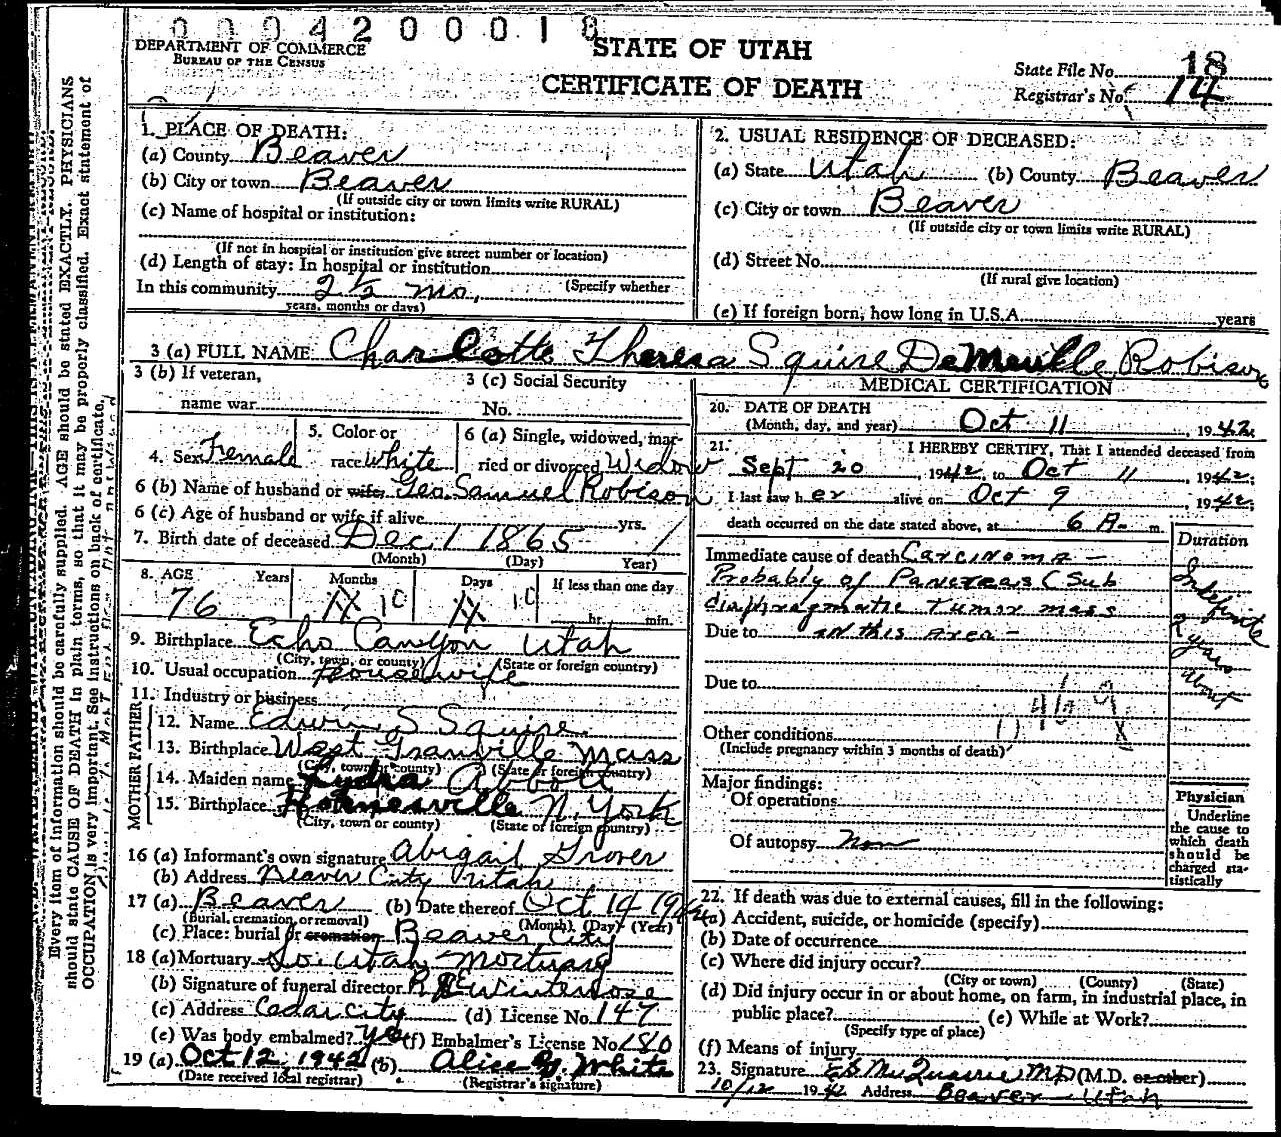 0 0 0 4 2 0 0 0 1 8
DEPARTMENT OF COMMERCE
BUREAU OF THE CENSUS
STATE OF UTAH
CERTIFICATE OF DEATH
State File No. 18
Registrar's No. 14
Every item of information should be carefully supplied. AGE should be stated EXACTLY. PHYSICIANS
should state CAUSE OF DEATH in plain terms, so that it may be properly classified. Exact statement of
OCCUPATION is very important. See instructions on back of certificate.
1. PLACE OF DEATH:
(a) County Beaver
(b) City or town Beaver
(If outside city or town limits write RURAL)
(c) Name of hospital or institution:
(If not in hospital or institution give street number or location)
(d) Length of stay: In hospital or institution
In this community 2 1/2 mo. (Specify whether
years, months or days)
2. USUAL RESIDENCE OF DECEASED:
(a) State Utah (b) County Beaver
(c) City or town Beaver
(If outside city or town limits write RURAL)
(d) Street No.
(If rural give location)
(e) If foreign born, how long in U.S.A. years
3 (a) FULL NAME Charlotte Theresa Squire DeMeville Robison
3 (b) If veteran,
name war
3 (c) Social Security
No.
4. Sex Female
5. Color or
race White
6 (a) Single, widowed, mar-
ried or divorced Widow
6 (b) Name of husband or wife Geo Samuel Robison
6 (c) Age of husband or wife if alive yrs.
7. Birth date of deceased Dec 1 1865
(Month) (Day) Year)
8. AGE Years Months Days If less than one day
76 10 10 hr. min.
9. Birthplace Echo Canyon Utah
(City, town, or county) (State or foreign country)
10. Usual occupation Housewife
11. Industry or business
FATHER
12. Name Edwin S Squire
13. Birthplace West Granville Mass
(City, town or county) (State or foreign country)
MOTHER
14. Maiden name Lydia Abbott
15. Birthplace Hornesville N. York
(City, town or county) (State or foreign country)
16 (a) Informant's own signature Abigail Grover
(b) Address Beaver City Utah
17 (a) Beaver (b) Date thereof Oct 14 1942
(Burial, cremation, or removal) (Month) (Day) (Year)
(c) Place: burial or cremation Beaver City
18 (a) Mortuary So. Utah Mortuary
(b) Signature of funeral director Winterrose
(c) Address Cedar City (d) License No. 147
(e) Was body embalmed? Yes (f) Embalmer's License No. 180
19 (a) Oct 12, 1942 (b) Alice White
(Date received local registrar) (Registrar's signature)
MEDICAL CERTIFICATION
20. DATE OF DEATH
(Month, day, and year) Oct 11, 1942.
21. I HEREBY CERTIFY, That I attended deceased from
Sept 20, 1942, to Oct 11, 1942;
I last saw her alive on Oct 9, 1942;
death occurred on the date stated above, at 6 A. m.
Duration
Immediate cause of death Carcinoma -
Probably of Pancreas (Sub
diaphragmatic tumor mass
Due to in this area -
Indefinite
2 years
about
Due to
Other conditions
(Include pregnancy within 3 months of death)
Major findings:
Of operations
Of autopsy None
Physician
Underline
the cause to
which death
should be
charged sta-
tistically
22. If death was due to external causes, fill in the following:
(a) Accident, suicide, or homicide (specify)
(b) Date of occurrence
(c) Where did injury occur?
(City or town) (County) (State)
(d) Did injury occur in or about home, on farm, in industrial place, in
public place? (e) While at Work?
(Specify type of place)
(f) Means of injury
23. Signature E S McQuarrie MD (M.D. or other)
10/12 1942 Address Beaver - Utah